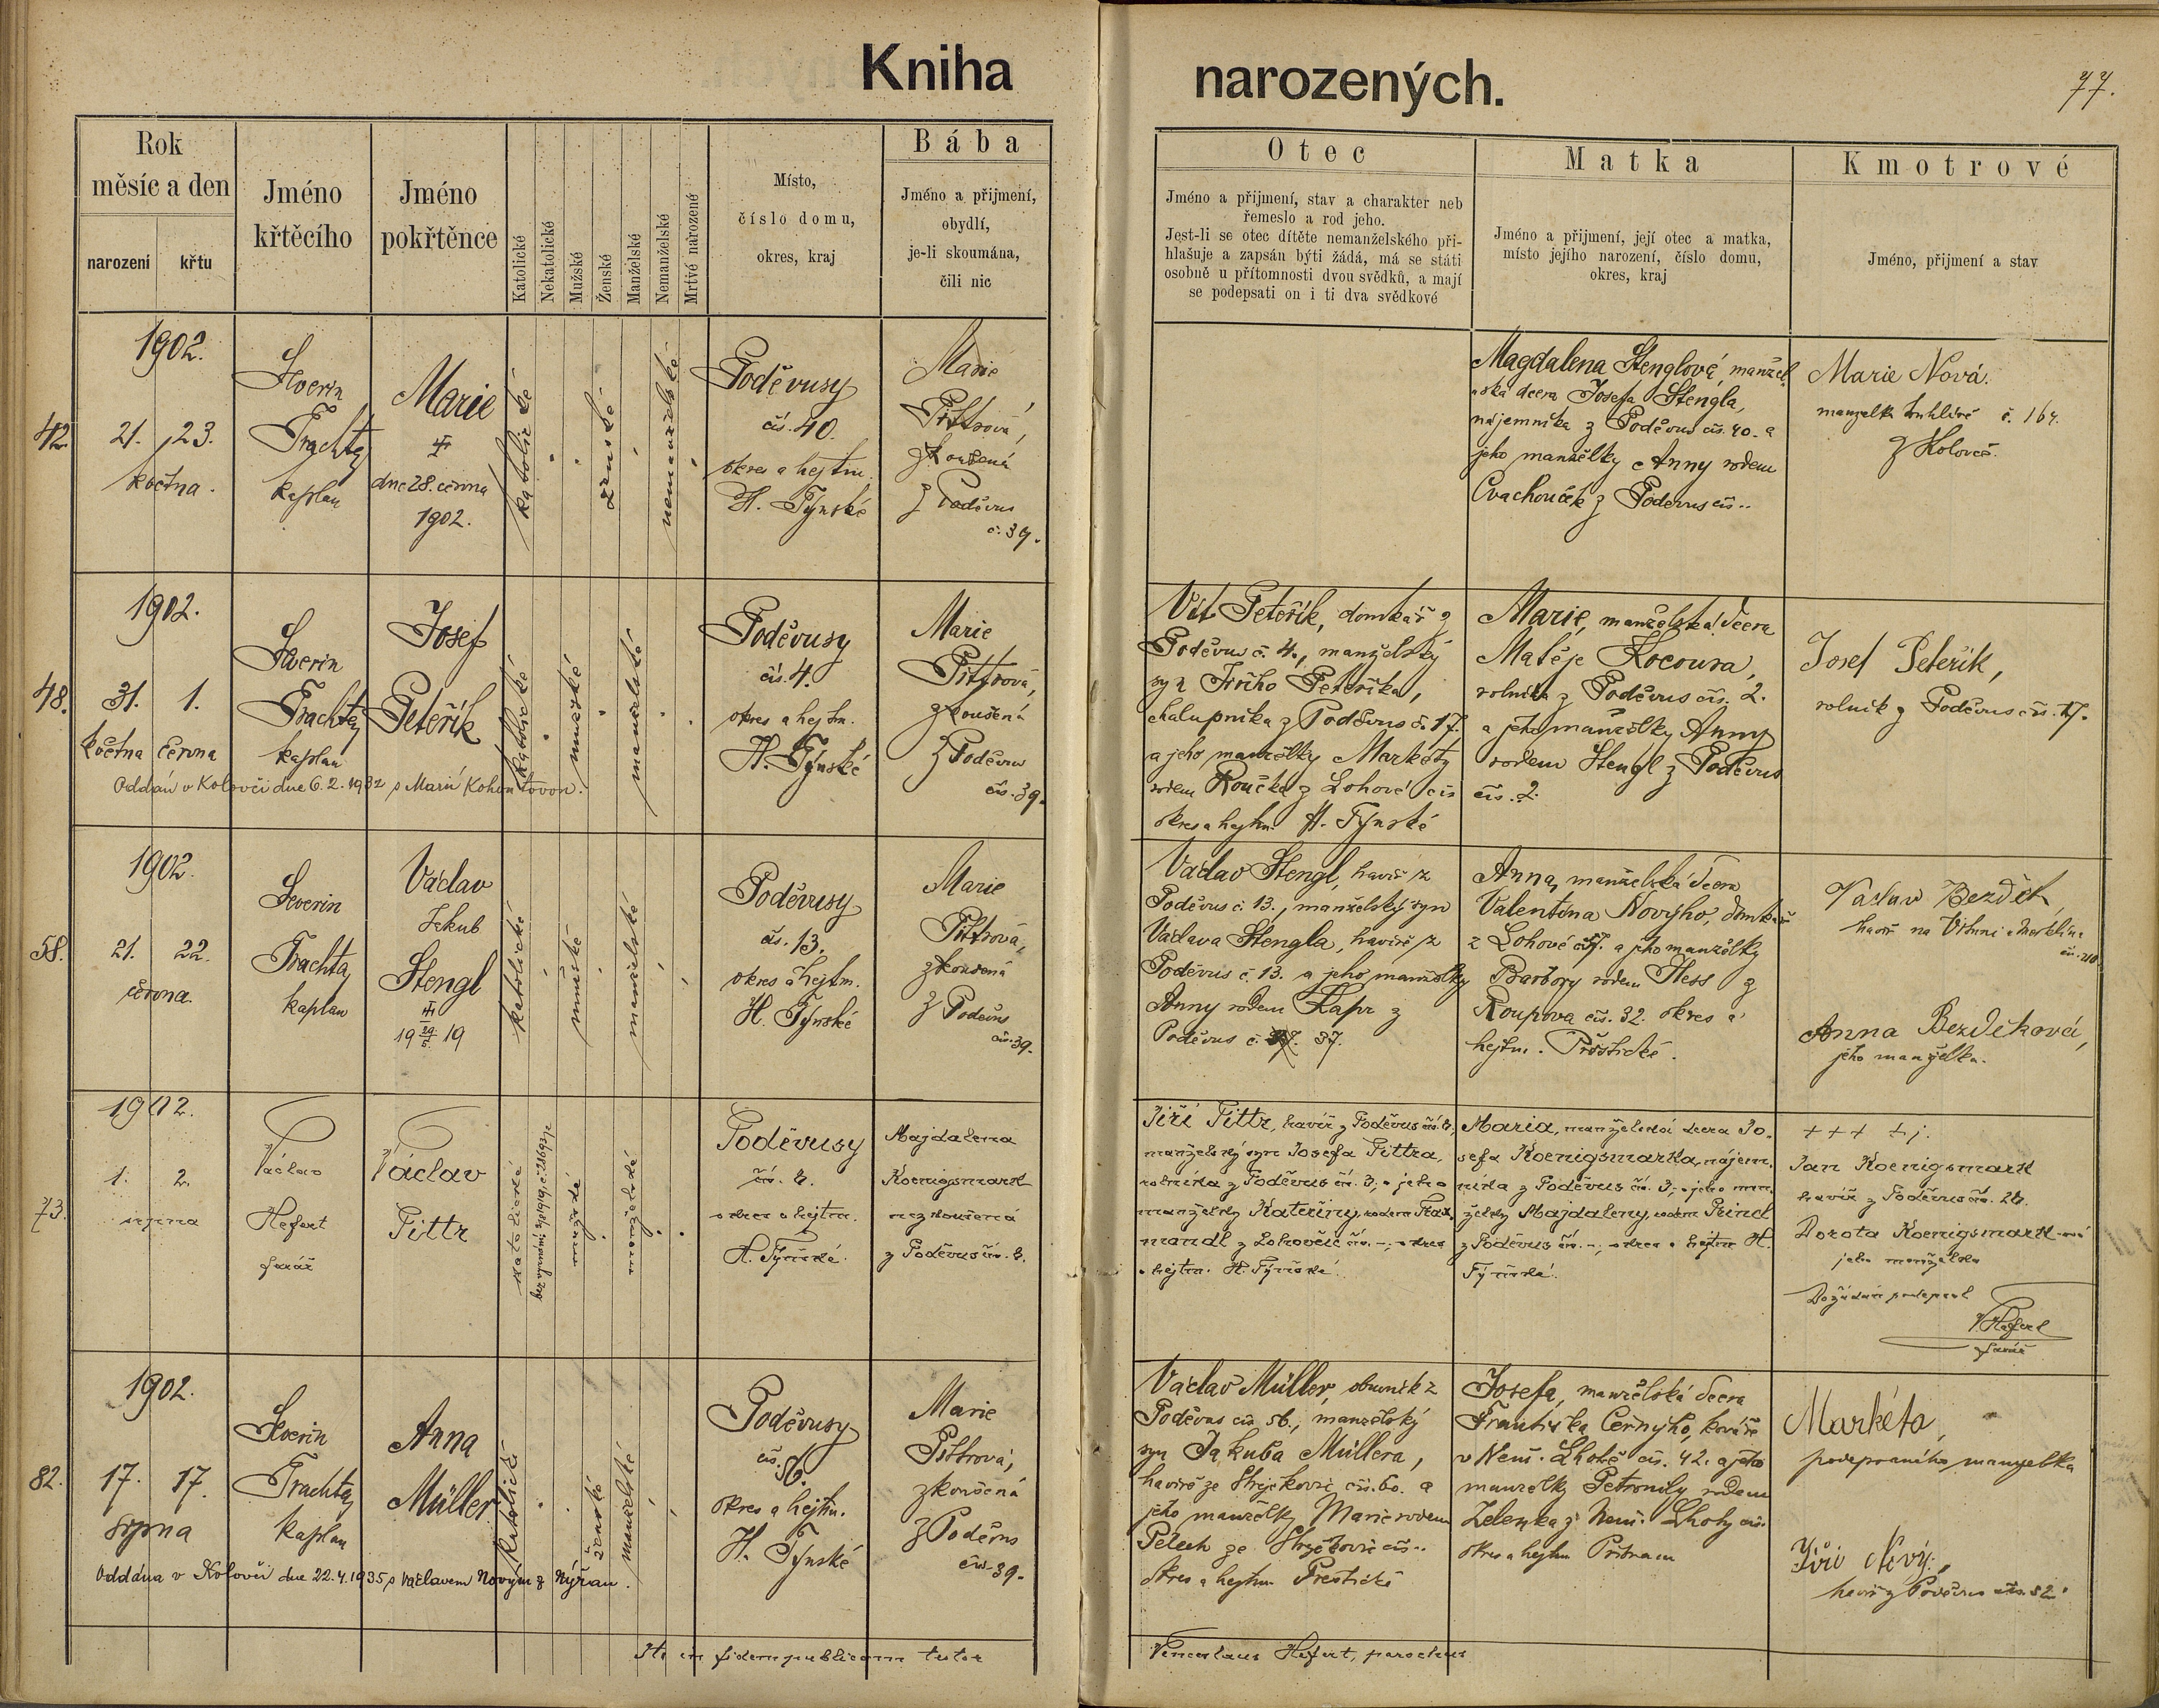 Kniha
narozených.
77.
Rok
měsíc a den
narození
křtu
Jméno
křtěcího
Jméno
pokřtěnce
Katolické
Nekatolické
Mužské
Ženské
Manželské
Nemanželské
Mrtvé národzené
Místo,
číslo domu,
okres, kraj
Bába
Jméno a přijmení,
obydlí,
je-li skoumána,
čili nic
Otec
Jméno a přijmení, stav a charakter neb
řemeslo a rod jeho.
Jest-li se otec dítěte nemanželského při-
hlašuje a zapsán býti žádá, má se státi
osobně u přítomnosti dvou svědků, a mají
se podepsati on i ti dva svědkové
Matka
Jméno a přijmení, její otec a matka,
místo jejího narození, číslo domu,
okres, kraj
Kmotrové
Jméno, přijmení a stav
42
1902.
21. 23.
května.
Severin
Trachta
kaplan
Marie
dne 28. června
1902.
katolické
ženské
nemanželské
Poděvusy
čís. 40.
okres a hejtm.
H. Týnské
Marie
Pittrová,
zkoušená
z Poděvus
č. 39.
Magdalena Stenglová, manžel-
ská dcera Josefa Stengla,
nájemníka z Poděvus čís. 40. a
jeho manželky Anny rodem
Cvachouček z Poděvus čís..
Marie Nová.
manželka truhláře č. 164.
z Koloveč.
48.
1902.
31. 1.
května června
Severin
Trachta
kaplan
Josef
Peteřík
katolické
mužské
manželské
Poděvusy
čís. 4.
okres a hejtm.
H. Týnské
Marie
Pittrová,
zkoušená
z Poděvus
čís. 39.
Oddán v Kolovči dne 6. 2. 1932 s Marií Kohoutovou.
Vít Peteřík, domkář z
Poděvus č. 4., manželský
syn Jiřího Peteříka,
chalupníka z Poděvus č. 17.
a jeho manželky Markéty
rodem Roučka z Lohové čís
okres a hejtm. H. Týnské
Marie, manželská dcera
Matěje Kocoura,
rolníka z Poděvus čís. 2.
a jeho manželky Anny
rodem Stengl z Poděvus
čís. 2.
Josef Peteřík,
rolník z Poděvus čís. 17.
58.
1902.
21. 22.
června.
Severin
Trachta
kaplan
Václav
Jakub
Stengl
19 29/5. 19
katolické
mužské
manželské
Poděvusy
čís. 13.
okres a hejtm.
H. Týnské
Marie
Pittrová,
zkoušená
z Poděvus
čís. 39.
Václav Stengl, havíř z
Poděvus č. 13., manželský syn
Václava Stengla, havíře z
Poděvus č. 13. a jeho manželky
Anny rodem Kapr z
Poděvus č. 37.
Anna, manželská dcera
Valentina Nového, domkáře
z Lohové a jeho manželky
Barbory rodem Hess z
Roupova čís. 32. okres a
hejtm. Přeštické.
Václav Bezděk,
havíř na
Anna Bezděková,
jeho manželka.
73.
1902.
1. 2.
srpna
Václav
Hefert
farář
Václav
Pittr
katolické
mužské
manželské
Poděvusy
čís. 4.
okres a hejtm.
H. Týnské.
Majdalena
Koenigsmark
nezkoušená
z Poděvus čís. 3.
Jiří Pittr, havíř z Poděvus čís. 4,
manželský syn Josefa Pittra,
rolníka z Poděvus čís. 3; a jeho
manželky Kateřiny, rodem
mandl z Lohovčic čís. -; okres
a hejtm. H. Týnské.
Maria, manželská dcera Jo-
sefa Koenigsmarka, nájem-
níka z Poděvus čís. 3; a jeho man-
želky Majdaleny, rodem
z Poděvus čís. -; okres a hejtm H.
Týnské.
+++
Jan Koenigsmark
havíř z Poděvus čís. 26.
Dorota Koenigsmark-ová
jeho manželka
Dožádán podepsal
VHefert
farář
82.
1902.
17. 17.
srpna
Severin
Trachta
kaplan
Anna
Müller
katolické
ženské
manželské
Poděvusy
čís. 56.
okres a hejtm.
H. Týnské
Marie
Pittrová,
zkoušená
z Poděvus
čís. 39.
Oddána v Kolovči dne 22.4.1935 s Václavem Novým z Nýřan.
Václav Müller, obuvník z
Poděvus čís. 56., manželský
syn Jakuba Müllera,
havíře ze Strýčkovic čís. 60. a
jeho manželky Marie rodem
Pelech ze Strýčkovic čís..
okres a hejtm Přeštické
Josefa, manželská dcera
Františka Černýho, kováře
v Nem. Lhotě čís. 42. a jeho
manželky Petronily rodem
Zelenka z Nem. Lhoty čís.
okres a hejtm Příbram
Markéta,
podepsaného manželka
Jiří Nový,
havíř z Poděvus čís. 52.
Ita in fidem publicam testor
Venceslaus Hefert, parochus